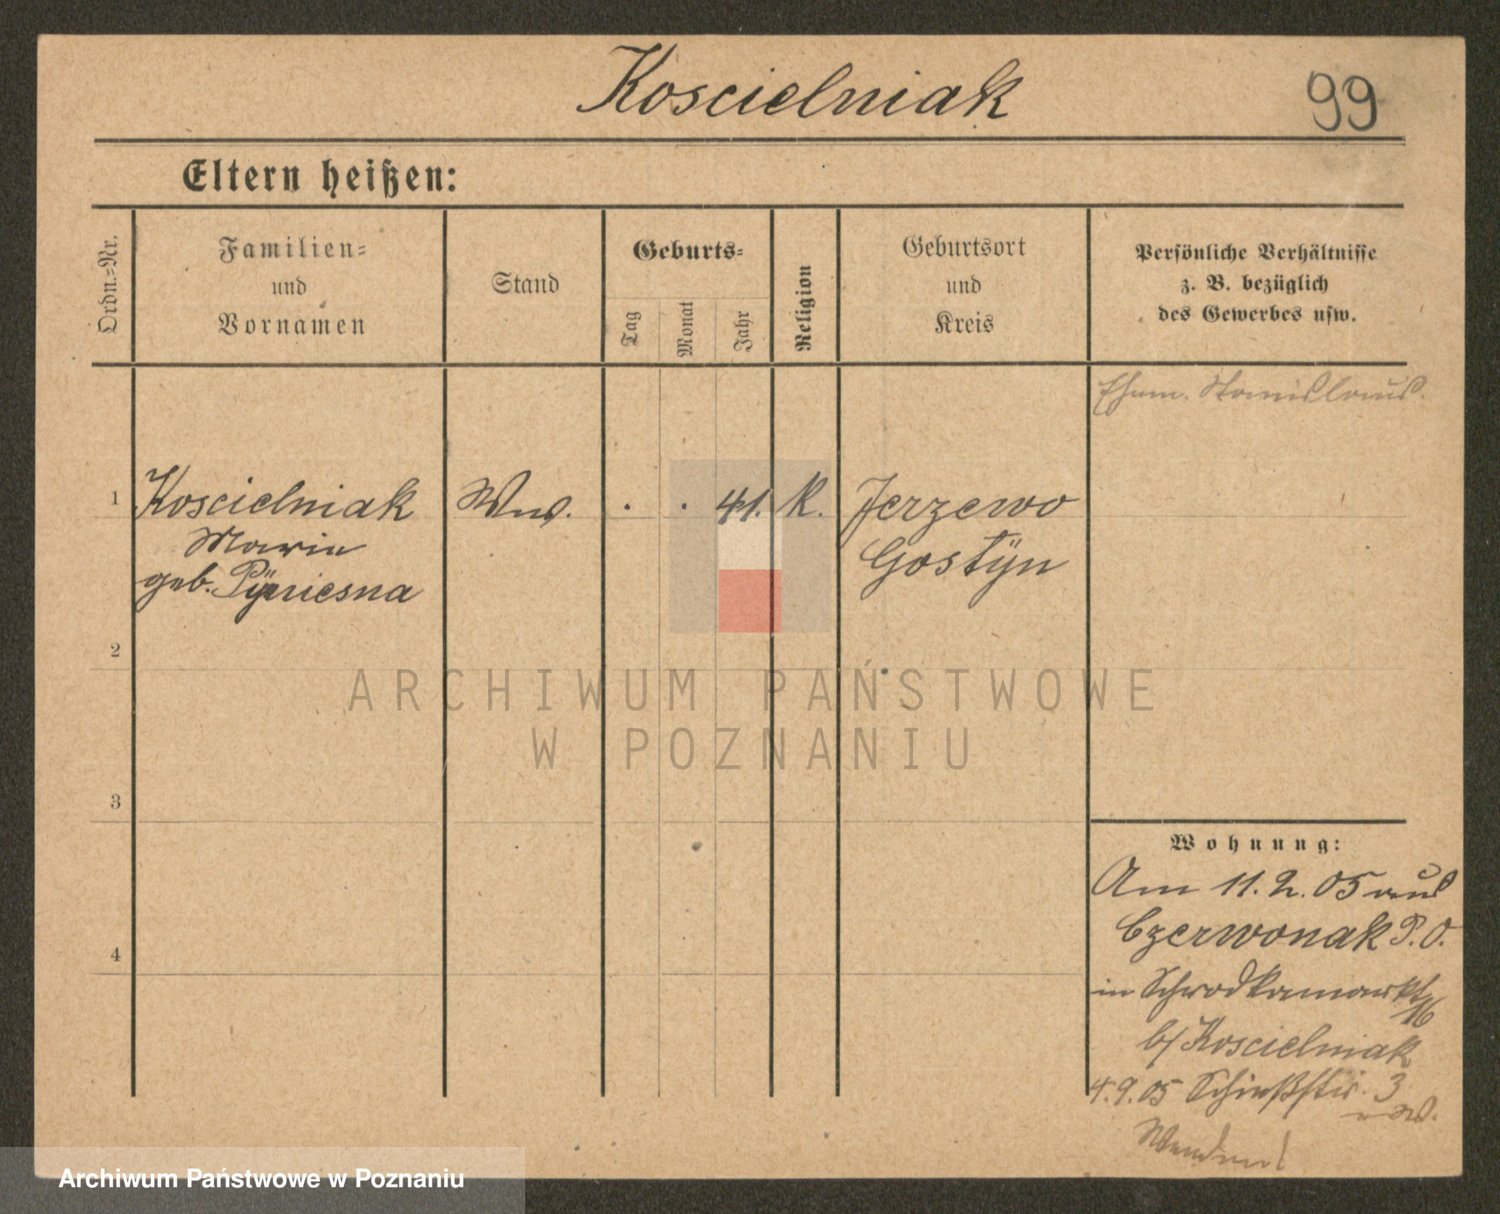 Koscielniak
99
Eltern heißen:
Ordn.=Nr.
Familien=
und
Vornamen
Stand
Geburts=
Tag
Monat
Jahr
Religion
Geburtsort
und
Kreis
Persönliche Verhältnisse
z. B. bezüglich
des Gewerbes usw.
Ehem. Stanislaus.
1
Koscielniak
Marie
geb.
Ww.
. . 41.
K.
Jerzewo
Gostÿn
2
3
4
ARCHIWUM PAŃSTWOWE
W POZNANIU
Wohnung:
Am 11.2.05 aus
Czerwonak P.O.
in Schrodkamarkt 16
b/ Koscielniak
4.9.05 Schießstr. 3
Wenden!
Archiwum Państwowe w Poznaniu